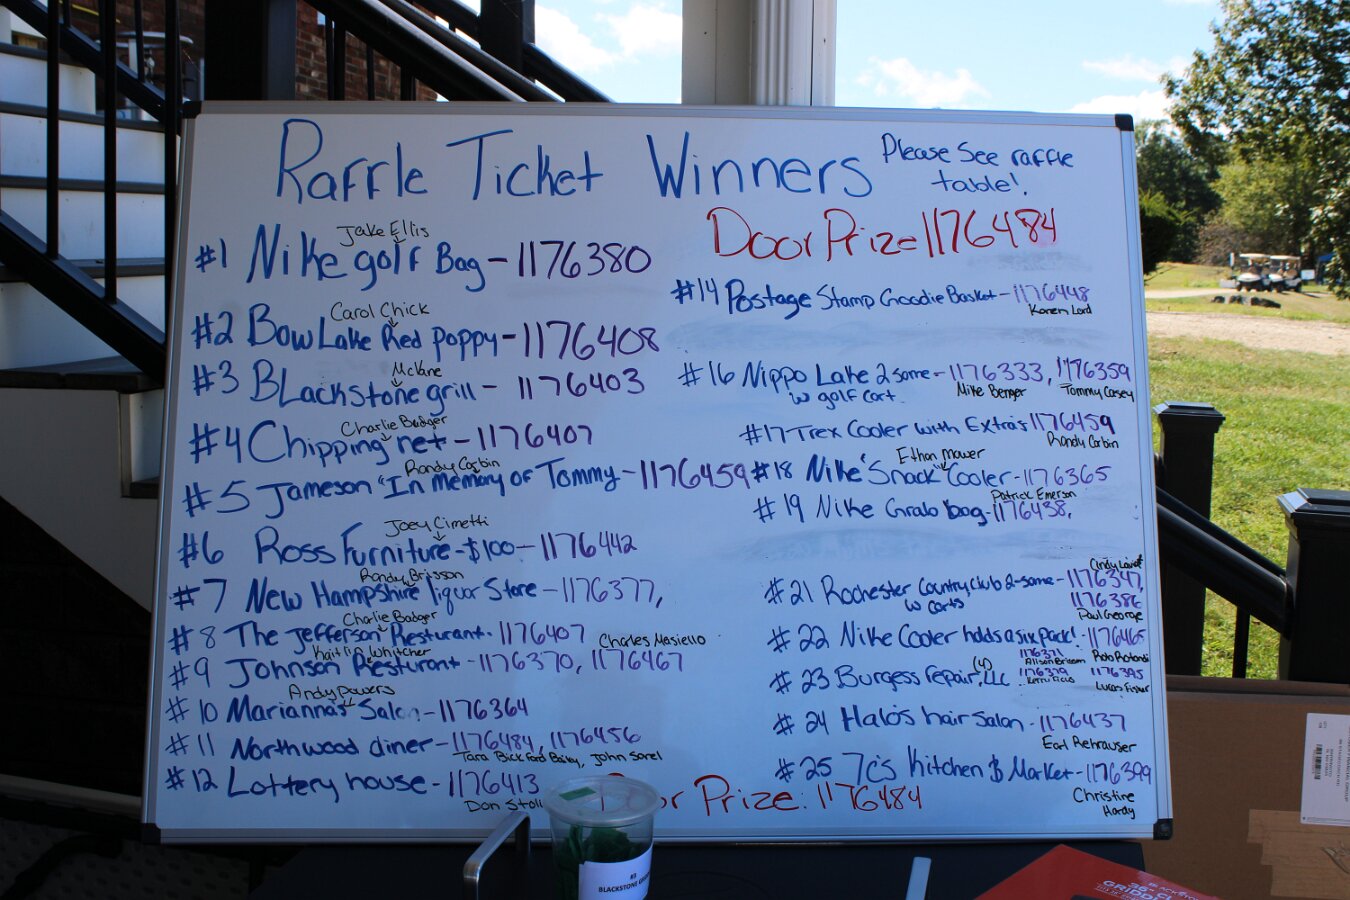 Raffle Ticket Winners
Please See raffle
table!
Door Prize 1176484
Jake Ellis
#1 Nike golf Bag - 1176380
Carol Chick
#2 Bow Lake Red poppy - 1176408
McKane
#3 Blackstone grill - 1176403
Charlie Badger
#4 Chipping net - 1176407
Randy Corbin
#5 Jameson "In Memory of Tommy - 1176459
Joey Cimetti
#6 Ross Furniture - $100 - 1176442
Randy Brisson
#7 New Hampshire liquor Store - 1176377,
Charlie Badger
#8 The Jefferson Resturant - 1176407
Kaitlin Whitcher
Charles Masiello
#9 Johnson Resturant - 1176370, 1176467
Andy Powers
#10 Marianna's Salon - 1176364
#11 Northwood diner - 1176484, 1176456
Tara Bickford Bailey, John Sorel
#12 Lottery house - 1176413
Don
#14 Postage Stamp Goodie Basket - 1176448
Karen Lord
#16 Nippo Lake 2 some - 1176333, 1176359
w golf cart
Mike Berger
Tommy Casey
#17 Trex Cooler with Extra's 1176459
Randy Corbin
Ethan Mower
#18 Nike "Snack" Cooler - 1176365
Patrick Emerson
#19 Nike Grab bag - 1176438,
Andy
#21 Rochester Country Club 2-some - 1176347,
w carts
1176386
Paul George
#22 Nike Cooler holds a six pack! - 1176465
Rob Rotondi
#23 Burgess repair, LLC (4)
1176371
Allison Brisson
1176379
1176395
Lucas Fisher
#24 Halo's hair salon - 1176437
Earl Rehrauser
#25 7c's Kitchen & Market - 1176399
Christine
Hardy
Prize: 1176484
#3
BLACKSTONE
GRIDD